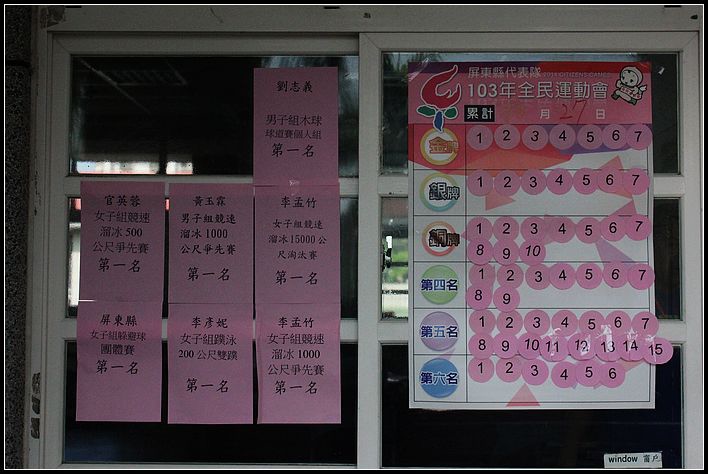 劉志義
男子組木球
球道賽個人組
第一名
官英蓉
女子組競速
溜冰500
公尺爭先賽
第一名
黃玉霖
男子組競速
溜冰1000
公尺爭先賽
第一名
李孟竹
女子組競速
溜冰15000公
尺淘汰賽
第一名
屏東縣
女子組躲避球
團體賽
第一名
李彥妮
女子組蹼泳
200公尺雙蹼
第一名
李孟竹
女子組競速
溜冰1000
公尺爭先賽
第一名
屏東縣代表隊
2014 CITIZENS GAMES
103年全民運動會
累計 月27日
金牌 1 2 3 4 5 6 7
銀牌 1 2 3 4 5 6 7
銅牌 1 2 3 4 5 6 7
8 9 10
第四名 1 2 3 4 5 6 7
8 9
第五名 1 2 3 4 5 6 7
8 9 10 11 12 13 14 15
第六名 1 2 3 4 5 6
window 窗戶